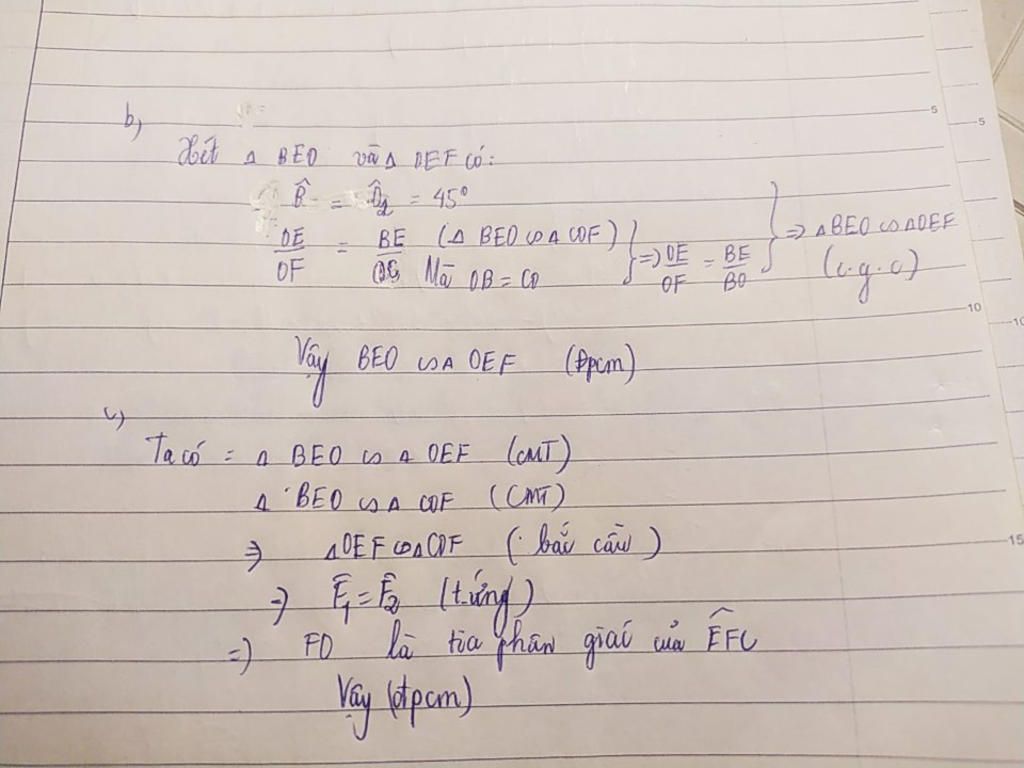 b)
Xét Δ BEO và Δ OEF có:
B̂ = Ô₂ = 45°
OE/OF = BE/OC (Δ BEO ∽ Δ COF) Mà OB = CO } => OE/OF = BE/BO } => Δ BEO ∽ Δ OEF (c.g.c)
Vậy BEO ∽ Δ OEF (Đpcm)
c)
Ta có = Δ BEO ∽ Δ OEF (CMT)
Δ BEO ∽ Δ COF (CMT)
=> Δ OEF ∽ Δ COF (bắc cầu)
=> F̂₁ = F̂₂ (t.ứng)
=> FO là tia phân giác của ÊFC
Vậy (đpcm)
5
5
10
10
15